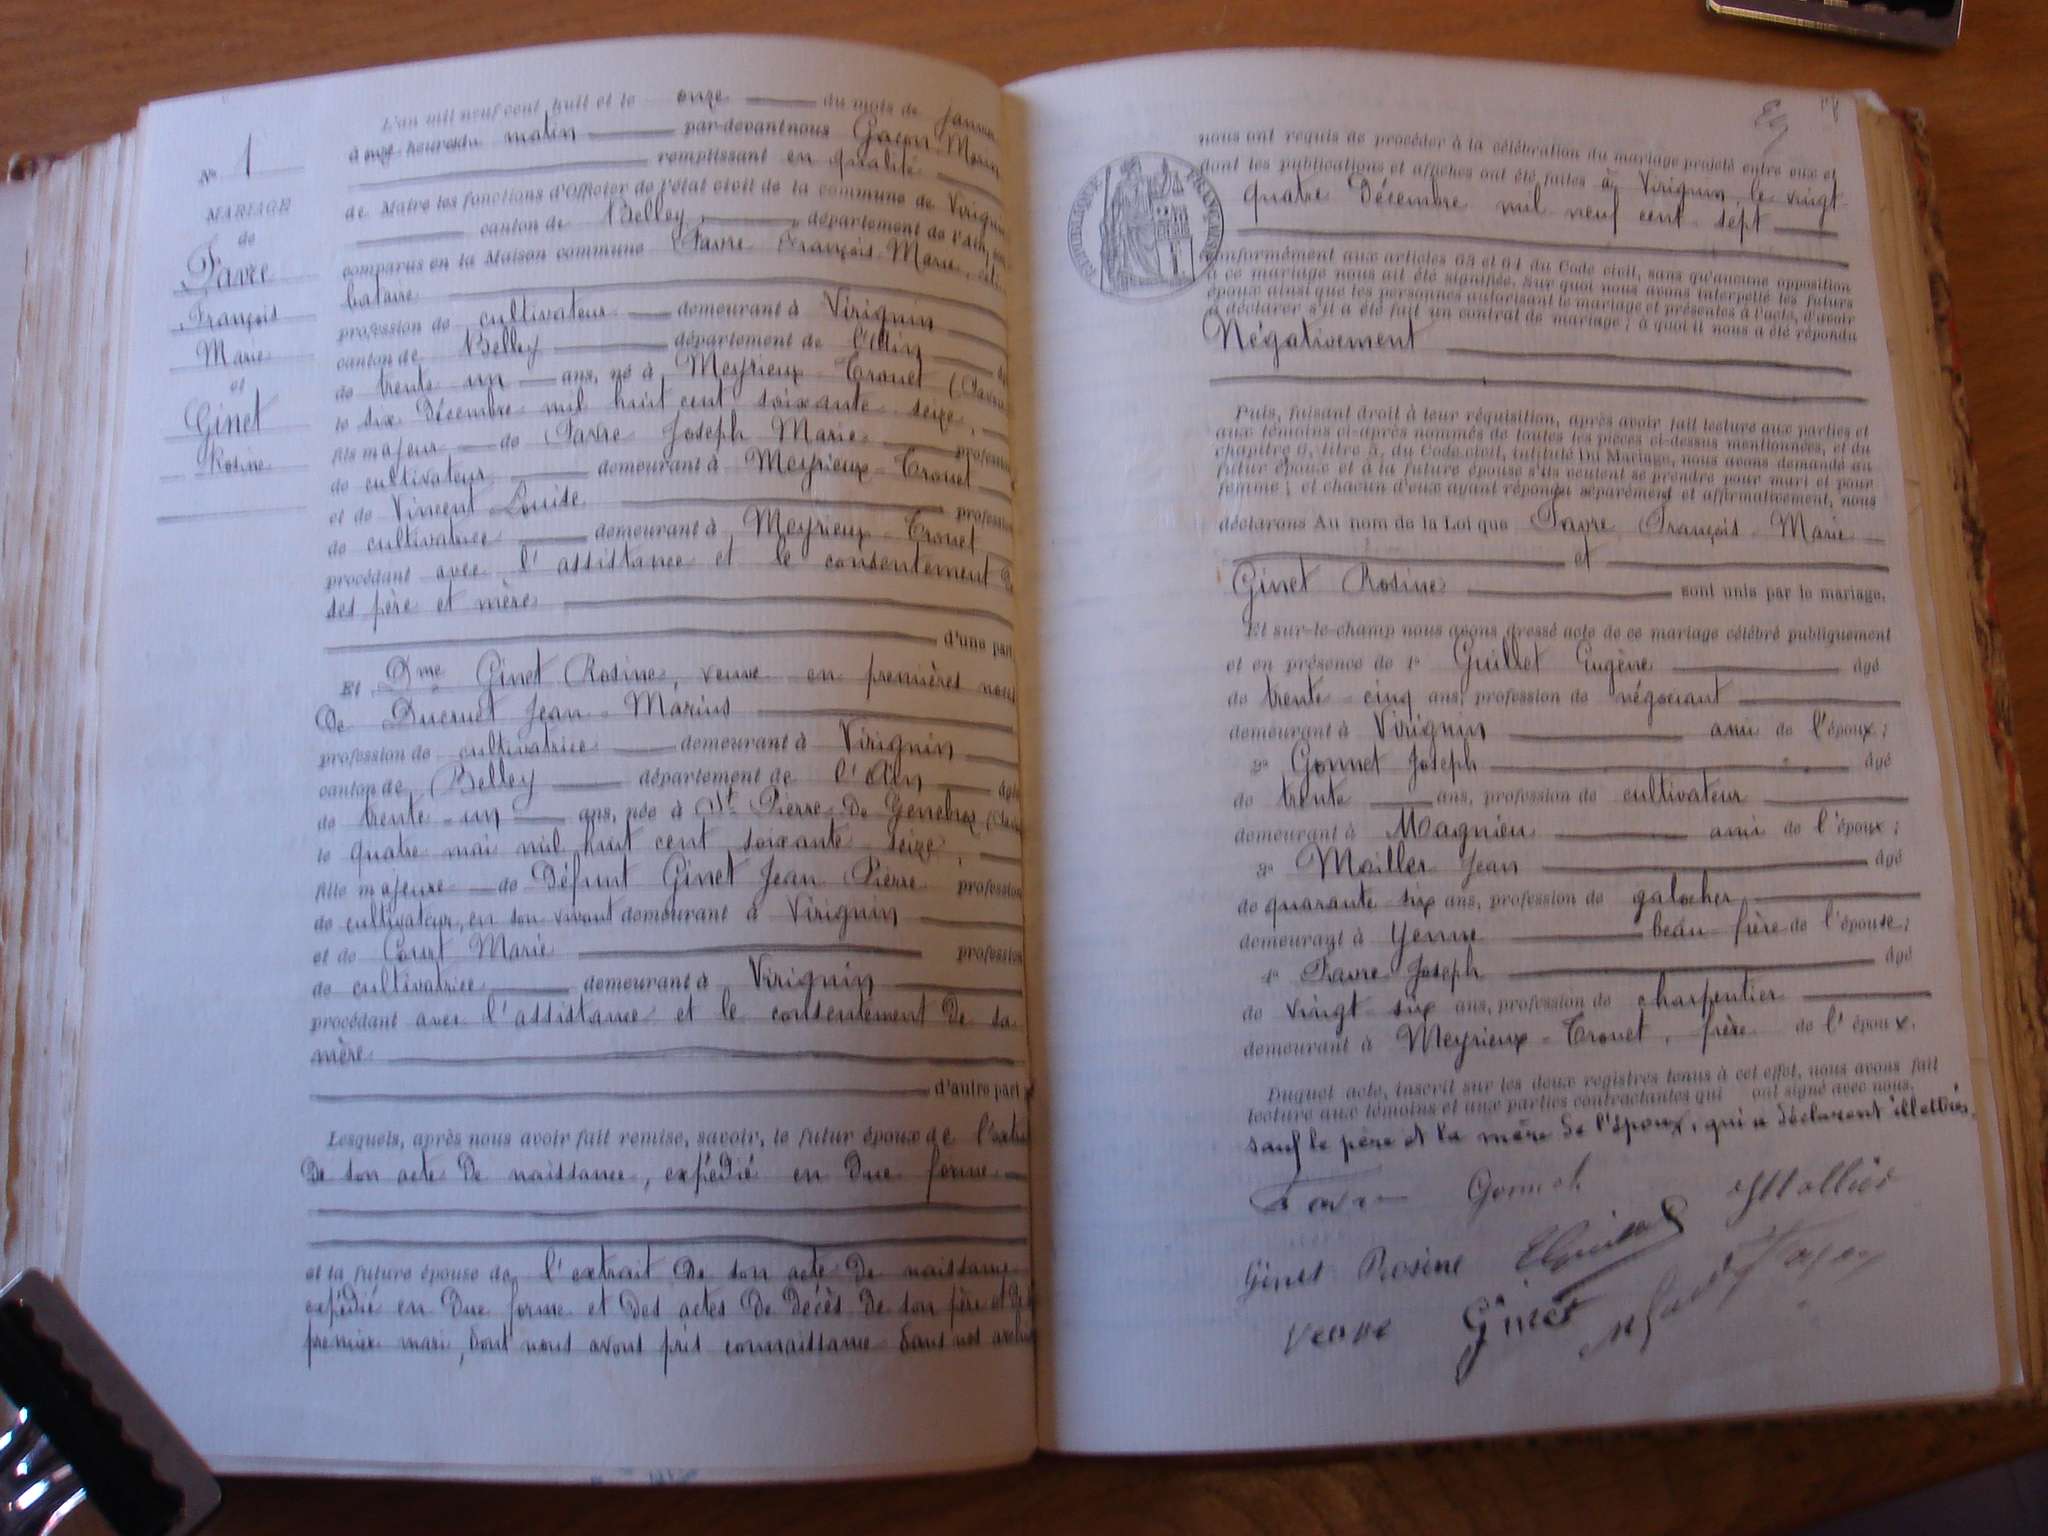 L'an mil neuf cent huit et le onze du mois de Janvier
à onze heures du matin par-devant nous Gacon, Marin
remplissant en qualité
de Maire les fonctions d'Officier de l'état civil de la commune de Virignin
canton de Belley, département de l'Ain,
comparus en la Maison commune Favre François Marie, céli-
bataire
profession de cultivateur demeurant à Virignin
canton de Belley département de l'Ain
de trente un ans, né à Meyrieux-Trouet
le six Décembre mil huit cent soixante seize,
fils majeur de Favre Joseph Marie profession
de cultivateur demeurant à Meyrieux-Trouet
et de Vincent Louise profession
de cultivatrice demeurant à Meyrieux-Trouet
procédant avec l'assistance et le consentement de
ses père et mère
d'une part
Et Dme Ginet Rosine, veuve en premières noces
De Ducruet Jean-Marius
profession de cultivatrice demeurant à Virignin
canton de Belley département de l'Ain âgée
de trente-un ans, née à St Pierre-De Genebroz
le quatre mai mil huit cent soixante seize,
fille majeure de Défunt Ginet Jean Pierre profession
de cultivateur, en son vivant demeurant à Virignin
et de Court Marie profession
de cultivatrice demeurant à Virignin
procédant avec l'assistance et le consentement De sa
mère
d'autre part
Lesquels, après nous avoir fait remise, savoir, le futur époux de l'extrait
De son acte De naissance, expédié en Due forme
et la future épouse de l'extrait De son acte De naissance
expédié en Due forme et Des actes De Décès De son père et De
premier mari, Dont nous avons pris connaissance Dans nos archives
N° 1
MARIAGE
de
Favre
François
Marie
et
Ginet
Rosine
nous ont requis de procéder à la célébration du mariage projeté entre eux et
dont les publications et affiches ont été faites à Virignin, le vingt-
quatre Décembre mil neuf cent sept
conformément aux articles 63 et 64 du Code civil, sans qu'aucune opposition
à ce mariage nous ait été signifiée. Sur quoi nous avons interpellé les futurs
époux ainsi que les personnes autorisant le mariage et présentes à l'acte, d'avoir
à déclarer s'il a été fait un contrat de mariage; à quoi il nous a été répondu
Négativement
Puis, faisant droit à leur réquisition, après avoir fait lecture aux parties et
aux témoins ci-après nommés de toutes les pièces ci-dessus mentionnées, et du
chapitre 6, titre 5, du Code civil, intitulé Du Mariage, nous avons demandé au
futur époux et à la future épouse s'ils veulent se prendre pour mari et pour
femme; et chacun d'eux ayant répondu séparément et affirmativement, nous
déclarons Au nom de la Loi que Favre François-Marie
et
Ginet Rosine sont unis par le mariage.
Et sur-le-champ nous avons dressé acte de ce mariage célébré publiquement
et en présence de 1° Guillet Eugène âgé
de trente-cinq ans, profession de négociant
demeurant à Virignin ami de l'époux;
2° Gonnet Joseph âgé
de trente ans, profession de cultivateur
demeurant à Magnieu ami de l'époux;
3° Moiller Jean âgé
de quarante six ans, profession de galocher
demeurant à Yenne beau-frère de l'épouse;
4° Favre Joseph âgé
de vingt-six ans, profession de charpentier
demeurant à Meyrieux-Trouet, frère de l'époux.
Duquel acte, inscrit sur les doux registres tenus à cet effet, nous avons fait
lecture aux témoins et aux parties contractantes qui ont signé avec nous.
sauf le père et la mère De l'époux, qui se déclarent illettrés.
Favre Gonnet Mollier
Ginet Rosine
veuve Ginet
RÉPUBLIQUE FRANÇAISE